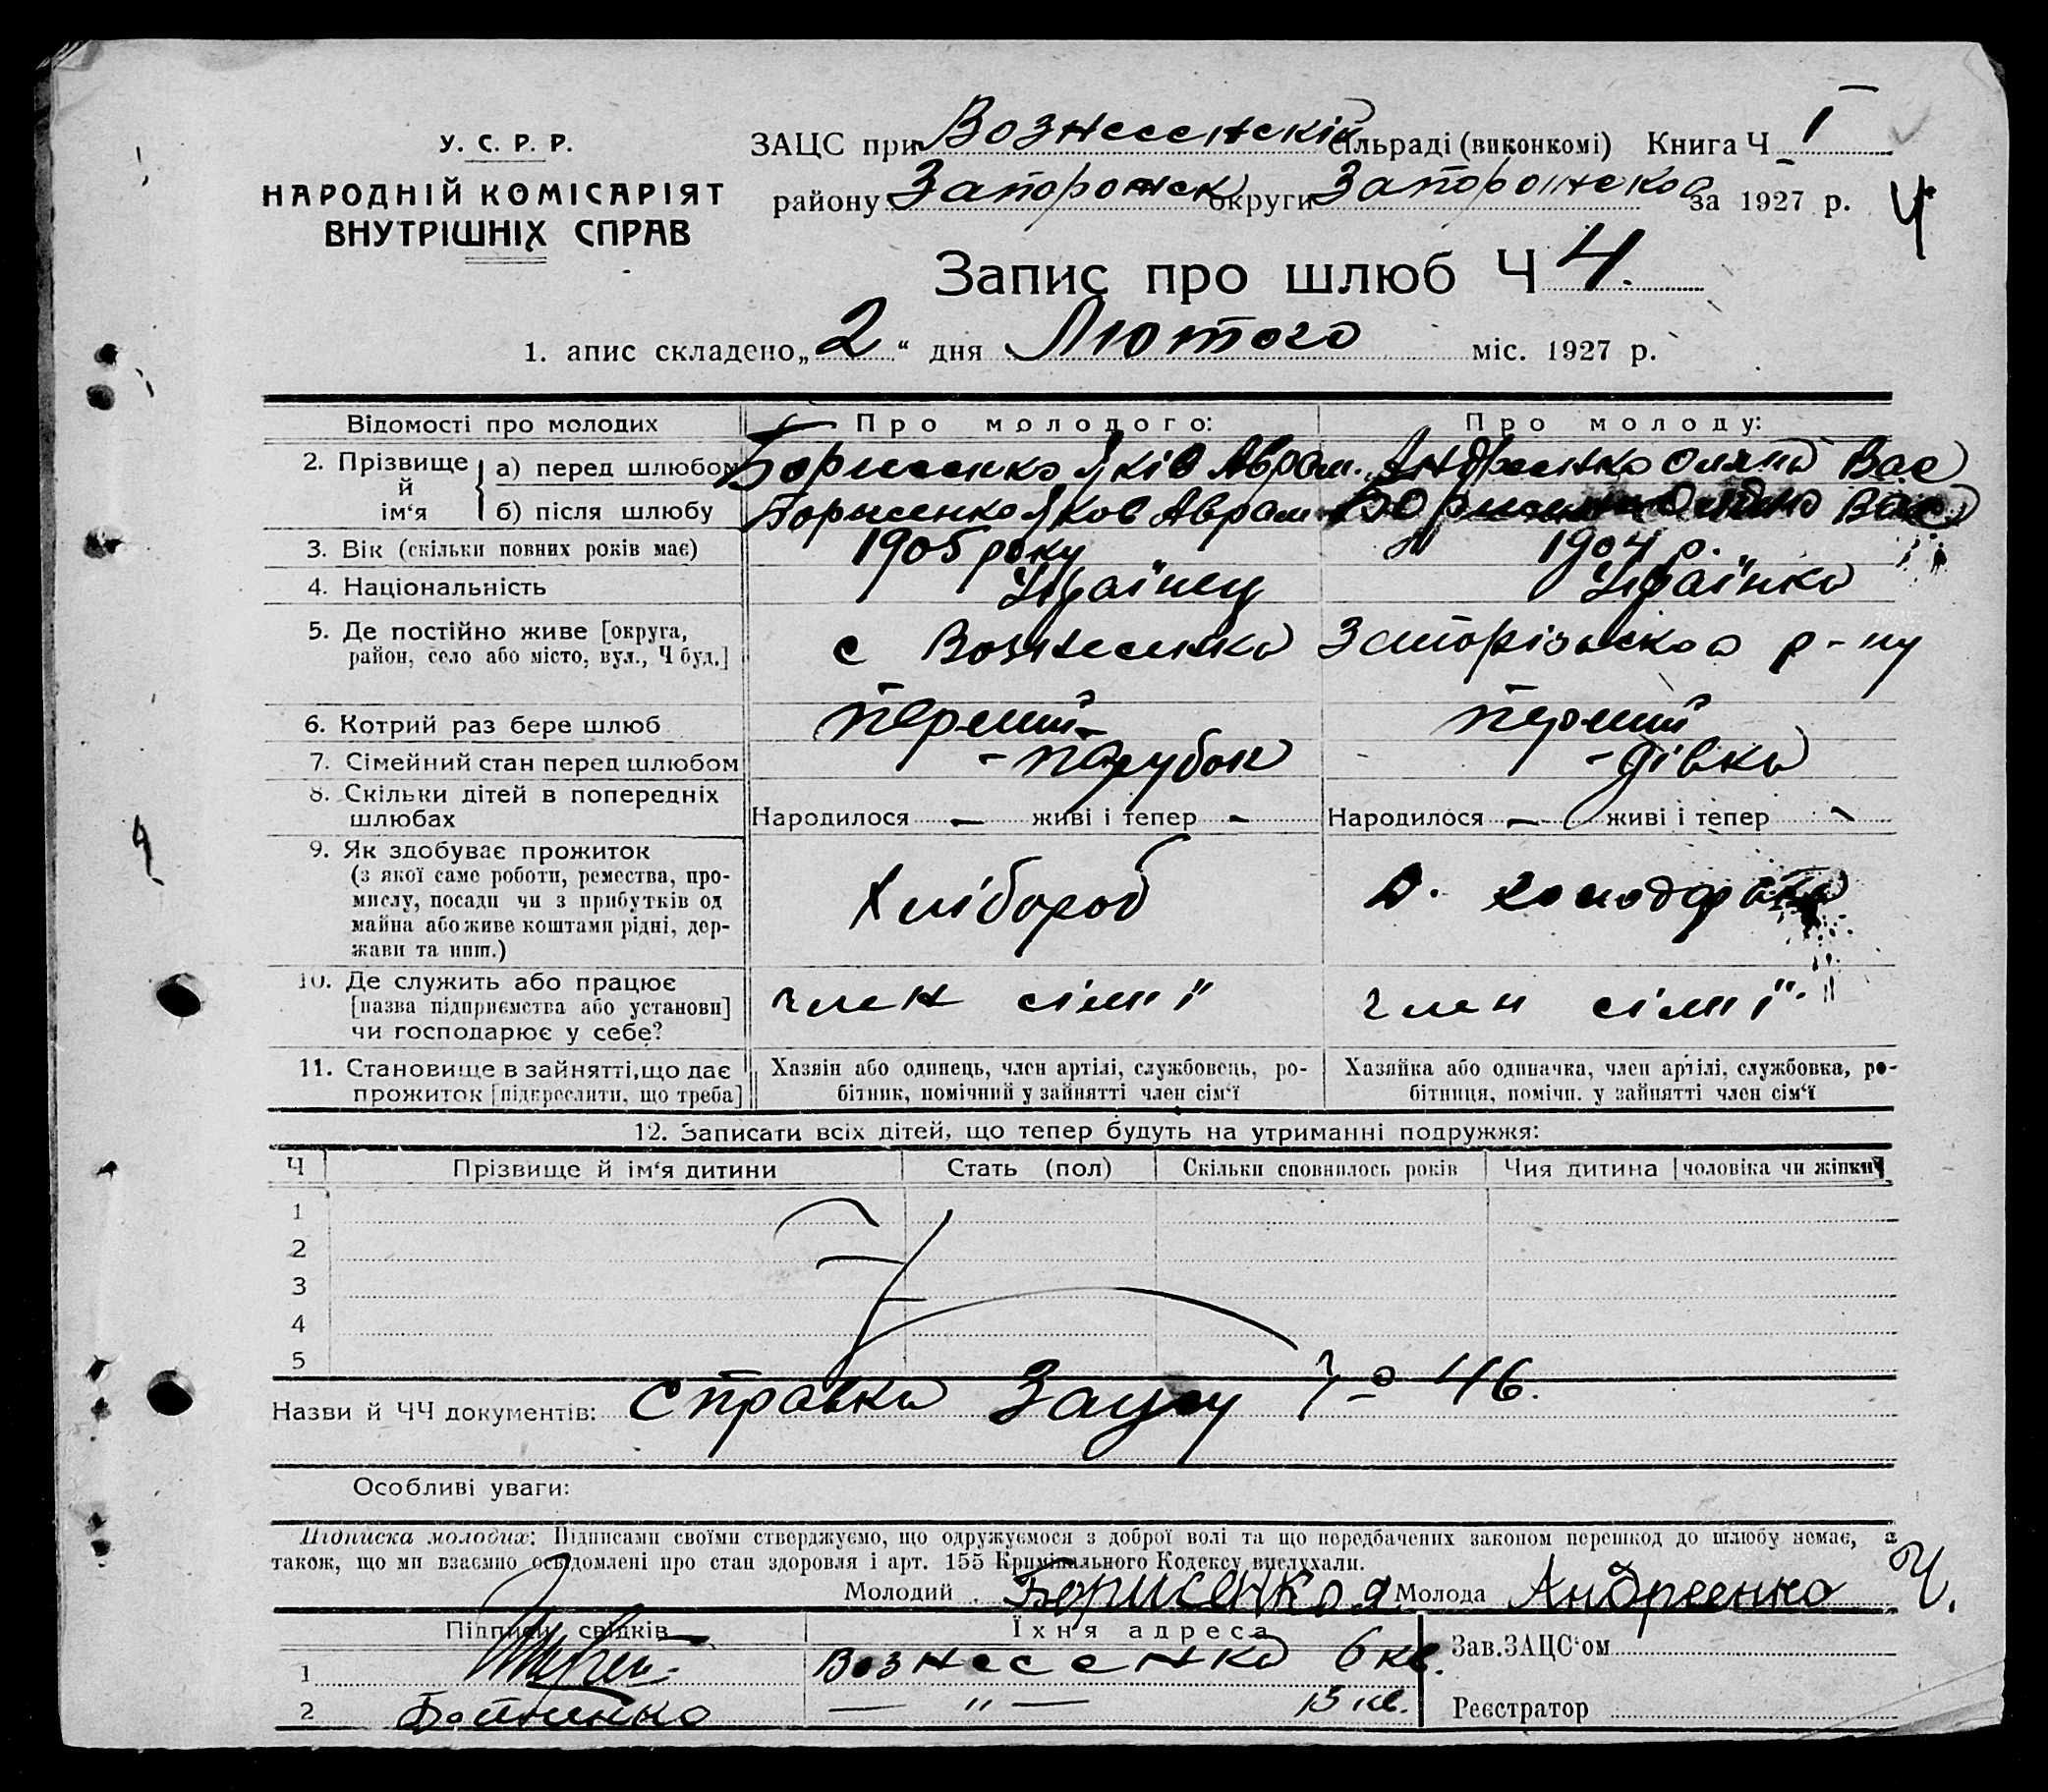 У. С. Р. Р.
НАРОДНІЙ КОМІСАРІЯТ
ВНУТРІШНІХ СПРАВ
ЗАЦС при Вознесенскій сільраді (виконкомі) Книга Ч I
району Запорожск округи Запорожскоо за 1927 р.
4
Запис про шлюб Ч 4.
1. апис складено „2“ дня Лютого міс. 1927 р.
Відомості про молодих Про молодого: Про молоду:
2. Прізвище й ім‘я
а) перед шлюбом Борисенко Яків Аврам. Андреенко Оляна Вас
б) після шлюбу Борисенко Яков Аврам Борисенко Вас
3. Вік (скільки повних років має) 1905 року 1904 р.
4. Національність Українец Українка
5. Де постійно живе [округа, с Вознесенка Запорізьскоо р-ну
район, село або місто, вул., Ч буд.]
6. Котрий раз бере шлюб перший перший
7. Сімейний стан перед шлюбом - парубок - дівка
8. Скільки дітей в попередніх
шлюбах Народилося — живі і тепер - Народилося - живі і тепер -
9. Як здобуває прожиток
(з якої саме роботи, ремества, про-
мислу, посади чи з прибутків од Хлібороб Д. господарка
майна або живе коштами рідні, дер-
жави та инш.)
10. Де служить або працює
[назва підприємства або установи] член сімї член сімї
чи господарює у себе?
11. Становище в зайнятті, що дає Хазяін або одинець, член артілі, службовець, ро- Хазяйка або одиначка, член артілі, службовка, ро-
прожиток [підкреслити, що треба] бітник, помічний у зайнятті член сім‘ї бітниця, помічн. у зайнятті член сім‘ї
12. Записати всіх дітей, що тепер будуть на утриманні подружжя:
Ч Прізвище й ім‘я дитини Стать (пол) Скільки сповнилось років Чия дитина [чоловіка чи жінки]
1
2
3
4
5
Назви й ЧЧ документів: справка Загсу № 46.
Особливі уваги:
Підписка молодих: Підписами своїми стверджуємо, що одружуємося з доброї волі та що передбачених законом перешкод до шлюбу немає, а
також, що ми взаємно освідомлені про стан здоровля і арт. 155 Кримінального Кодексу вислухали.
Молодий Борисенко Я Молода Андреенко
Підписи свідків Їхня адреса Зав. ЗАЦС‘ом
1 Вознесенка 6 кв.
2 — " — 15 кв. Реєстратор